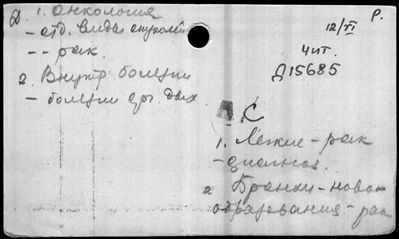 Д 1. Онкология
- отд. виды опухолей
- - рак.
2. Внутр болезни
- болезни орг. дых
12/VI Р.
Чит.
Д15685
К
1. Лёгкие - рак
- диагноз.
2. Бронхи - ново
образования - рак